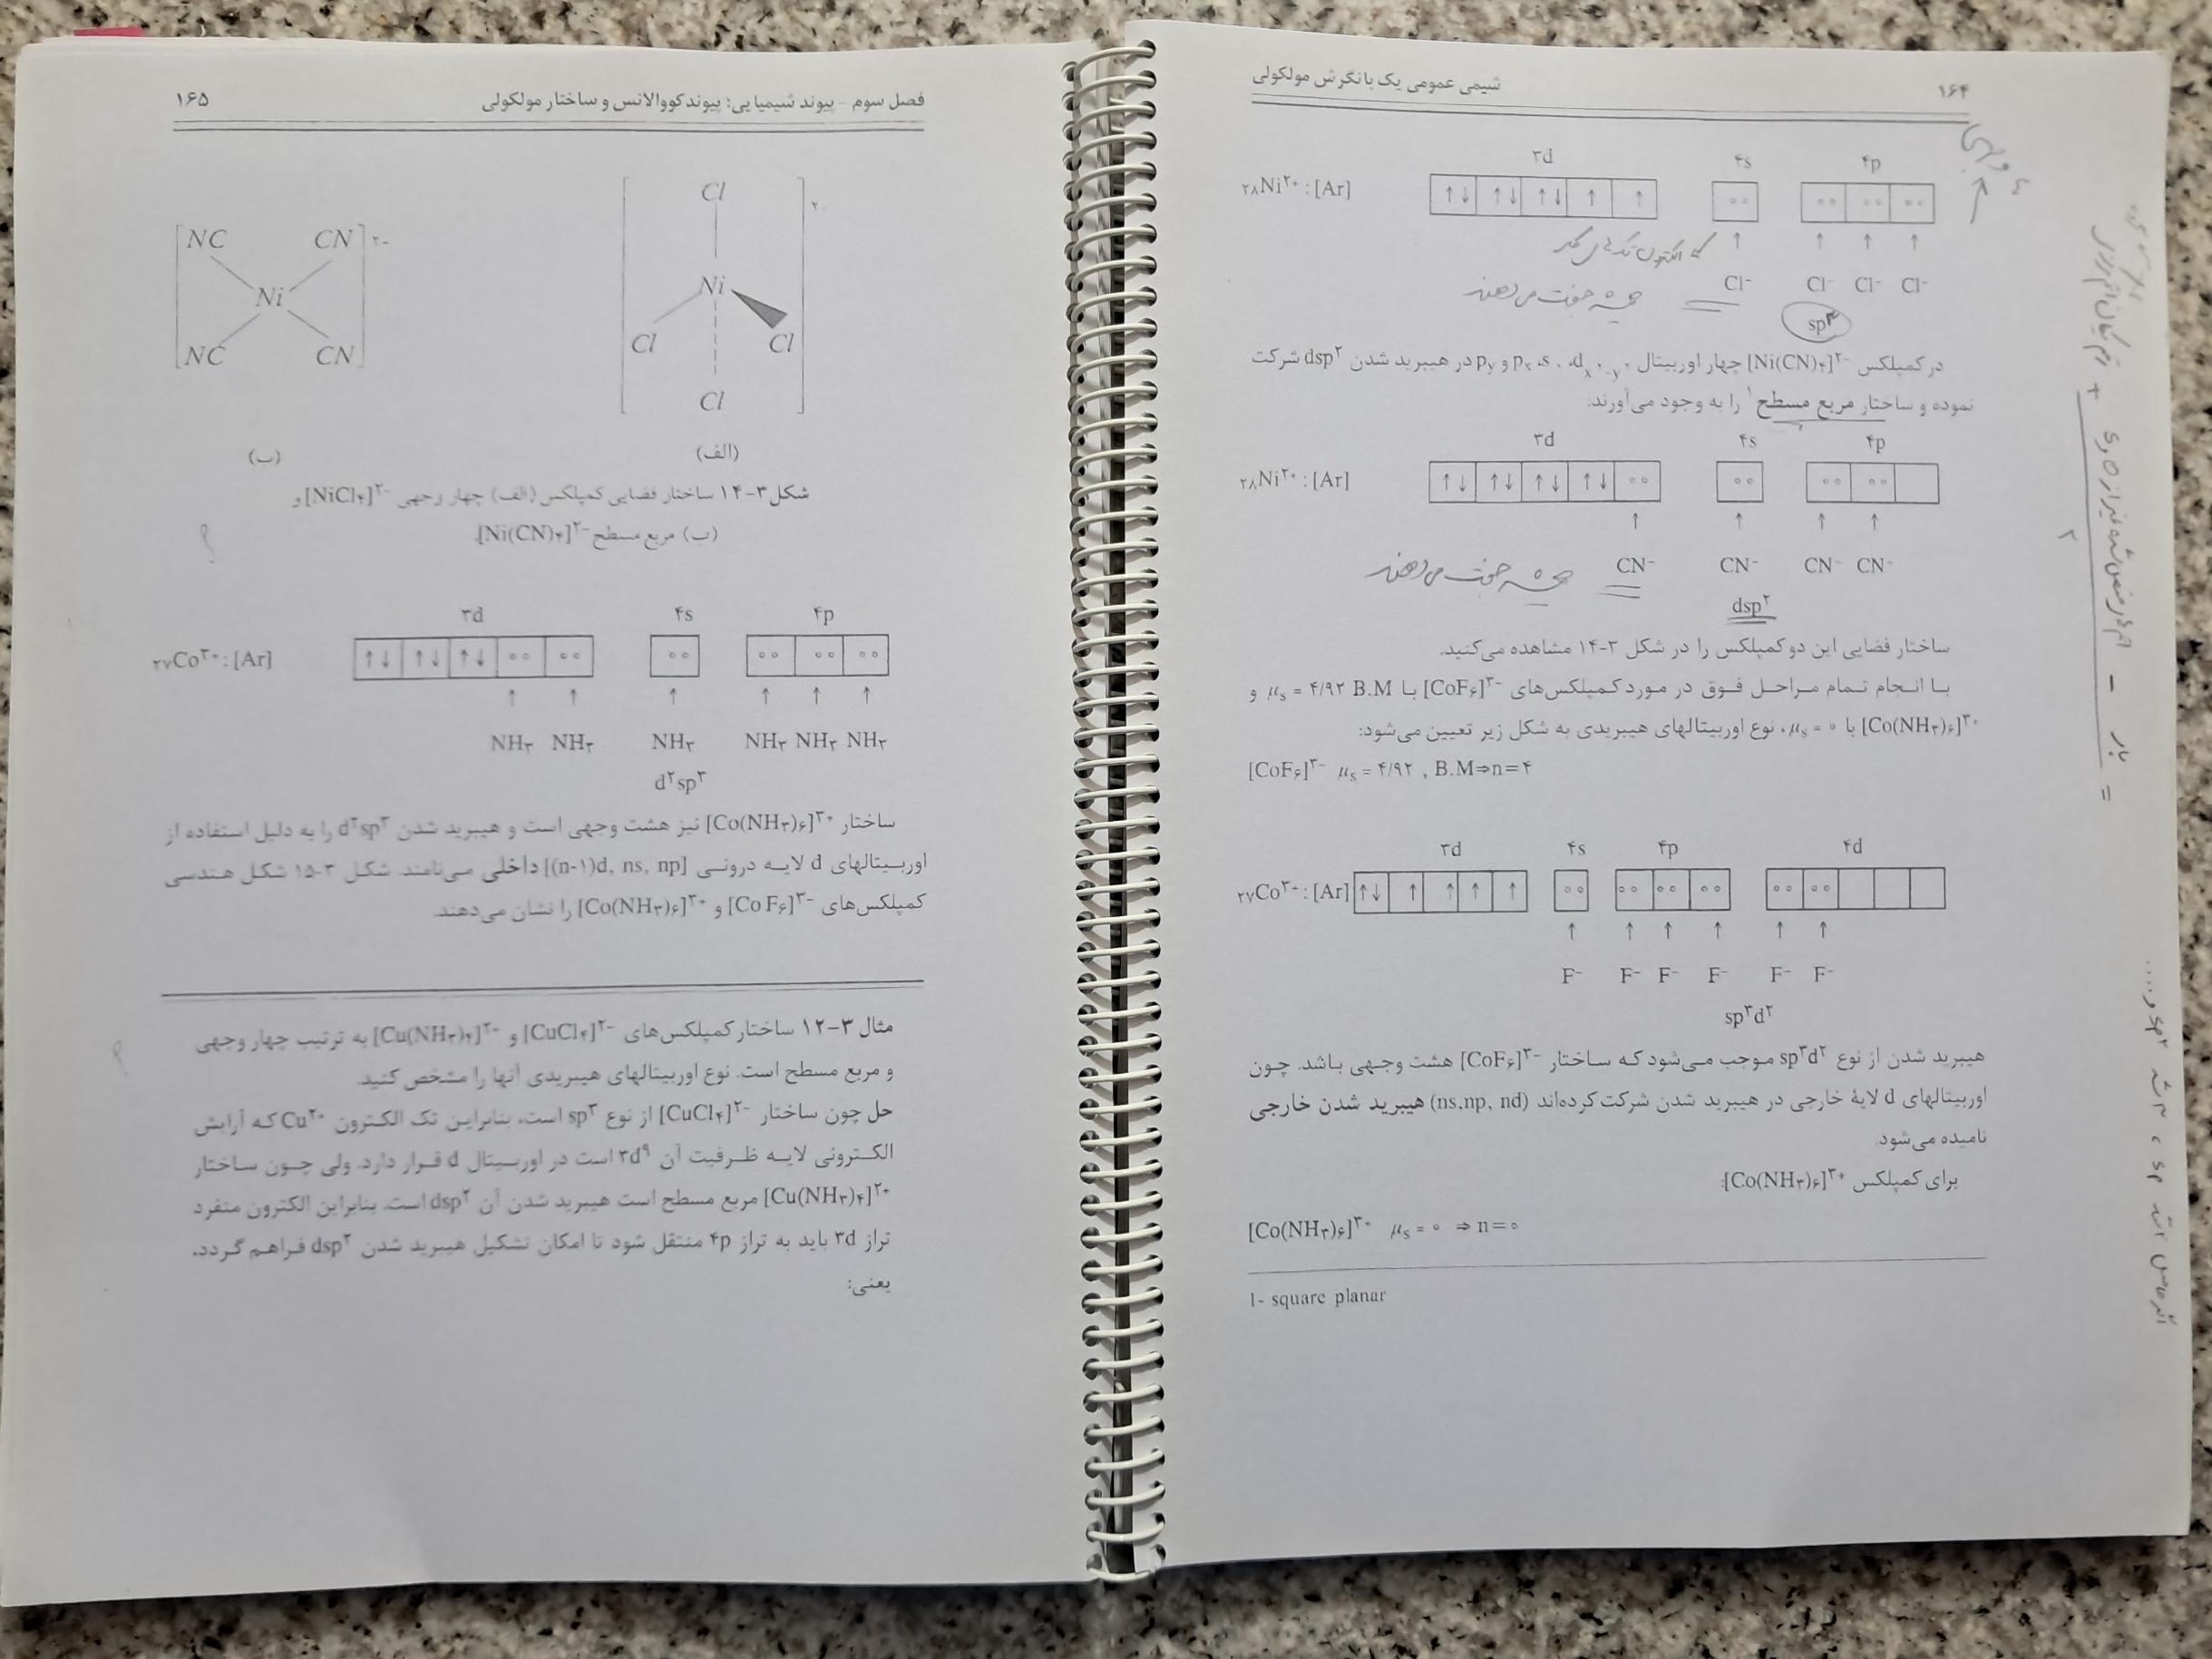 ۱۶۴
شیمی عمومی یک با نگرش مولکولی
۳d ۴s ۴p
۲۸Ni۲+ : [Ar] ↑↓ ↑↓ ↑↓ ↑ ↑ ∘∘ ∘∘ ∘∘ ∘∘
↑ ↑ ↑ ↑
Cl- Cl- Cl- Cl-
همیشه جفت می‌دهند
sp۳
در کمپلکس [Ni(CN)۴]۲− چهار اوربیتال dx۲-y۲، s، px و py در هیبرید شدن dsp۲ شرکت
نموده و ساختار مربع مسطح۱ را به وجود می‌آورند:
۳d ۴s ۴p
۲۸Ni۲+ : [Ar] ↑↓ ↑↓ ↑↓ ↑↓ ∘∘ ∘∘ ∘∘ ∘∘
↑ ↑ ↑ ↑
CN- CN- CN- CN-
همیشه جفت می‌دهند
dsp۲
ساختار فضایی این دو کمپلکس را در شکل ۳-۱۴ مشاهده می‌کنید.
با انجام تمام مراحل فوق در مورد کمپلکس‌های [CoF۶]۳− با μs = ۴/۹۲ B.M و
[Co(NH۳)۶]۳+ با μs = ۰، نوع اوربیتالهای هیبریدی به شکل زیر تعیین می‌شود:
[CoF۶]۳− μs = ۴/۹۲ , B.M⇒n=۴
۳d ۴s ۴p ۴d
۲۷Co۳+ : [Ar] ↑↓ ↑ ↑ ↑ ↑ ∘∘ ∘∘ ∘∘ ∘∘ ∘∘ ∘∘
↑ ↑ ↑ ↑ ↑ ↑
F- F- F- F- F- F-
sp۳d۲
هیبرید شدن از نوع sp۳d۲ موجب می‌شود که ساختار [CoF۶]۳− هشت وجهی باشد. چون
اوربیتالهای d لایهٔ خارجی در هیبرید شدن شرکت کرده‌اند (ns,np, nd) هیبرید شدن خارجی
نامیده می‌شود.
برای کمپلکس [Co(NH۳)۶]۳+:
[Co(NH۳)۶]۳+ μs = ۰ ⇒ n=۰
1- square planar
فصل سوم - پیوند شیمیایی: پیوند کووالانس و ساختار مولکولی
۱۶۵
NC CN ۲-
Ni
NC CN
Cl ۲-
Ni
Cl Cl
Cl
(الف)
(ب)
شکل ۳-۱۴ ساختار فضایی کمپلکس (الف) چهار وجهی [NiCl۴]۲− و
(ب) مربع مسطح [Ni(CN)۴]۲−.
؟
۳d ۴s ۴p
۲۷Co۳+ : [Ar] ↑↓ ↑↓ ↑↓ ∘∘ ∘∘ ∘∘ ∘∘ ∘∘ ∘∘
↑ ↑ ↑ ↑ ↑ ↑
NH۳ NH۳ NH۳ NH۳ NH۳ NH۳
d۲sp۳
ساختار [Co(NH۳)۶]۳+ نیز هشت وجهی است و هیبرید شدن d۲sp۳ را به دلیل استفاده از
اوربیتالهای d لایه درونی [(n-۱)d, ns, np] داخلی می‌نامند. شکل ۳-۱۵ شکل هندسی
کمپلکس‌های [Co F۶]۳− و [Co(NH۳)۶]۳+ را نشان می‌دهند.
؟
مثال ۳-۱۲ ساختار کمپلکس‌های [CuCl۴]۲− و [Cu(NH۳)۴]۲+ به ترتیب چهار وجهی
و مربع مسطح است. نوع اوربیتالهای هیبریدی آنها را مشخص کنید.
حل چون ساختار [CuCl۴]۲− از نوع sp۳ است، بنابراین تک الکترون Cu۲+ که آرایش
الکترونی لایه ظرفیت آن ۳d۹ است در اوربیتال d قرار دارد. ولی چون ساختار
[Cu(NH۳)۴]۲+ مربع مسطح است هیبرید شدن آن dsp۲ است. بنابراین الکترون منفرد
تراز ۳d باید به تراز ۴p منتقل شود تا امکان تشکیل هیبرید شدن dsp۲ فراهم گردد.
یعنی: